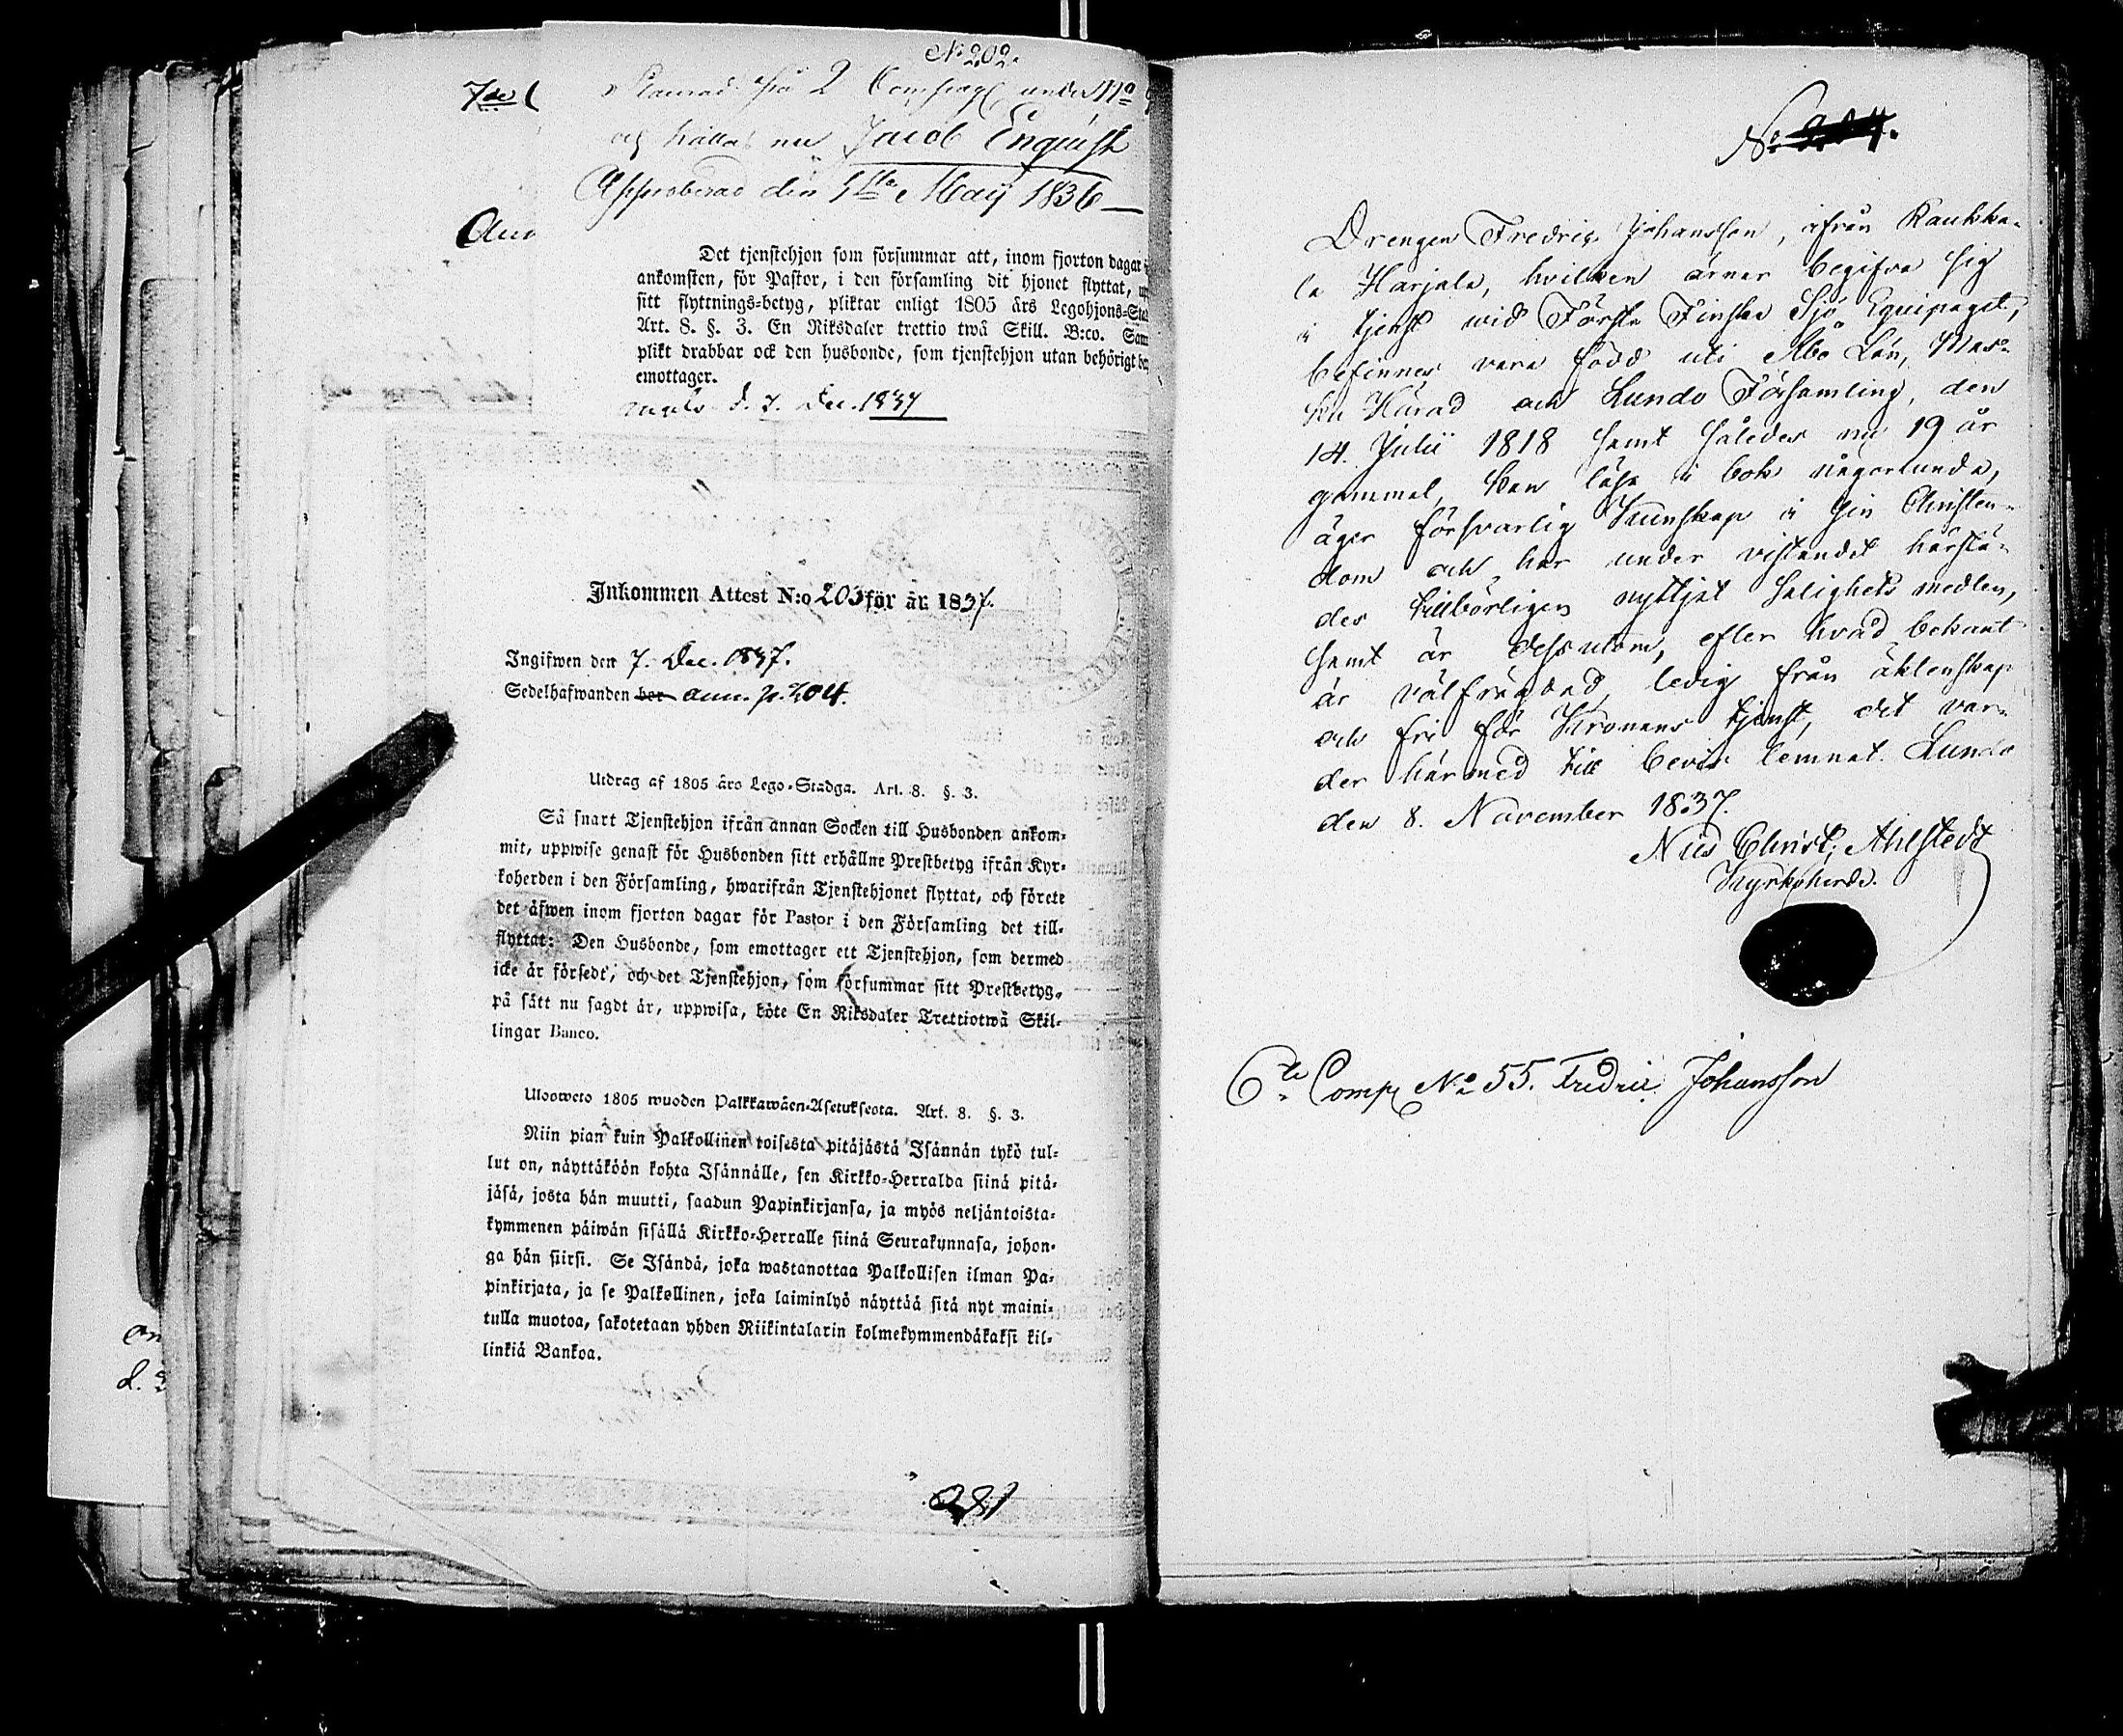 No 202.
7de
på 2 Compag. under No
och kallas nu Jacob Enquist
Approberad den 5te Maij 1836
Det tjenstehjon som försummar att, inom fjorton dagar
ankomsten, för Pastor, i den församling dit hjonet flyttat,
sitt flyttnings-betyg, pliktar enligt 1805 års Legohjons-
Art. 8. §. 3. En Riksdaler trettio twå Skill. B:co.
plikt drabbar ock den husbonde, som tjenstehjon utan behörigt
emottager.
d. 7. Dec. 1837
Inkommen Attest N:o 203 för år 1837.
Ingifwen den 7. Dec. 1837.
Sedelhafwanden ann. p. 204.
Utdrag af 1805 års Lego-Stadga. Art. 8. §. 3.
Så snart Tjenstehjon ifrån annan Socken till Husbonden ankom-
mit, uppwise genast för Husbonden sitt erhållne Prestbetyg ifrån Kyr-
koherden i den Församling, hwarifrån Tjenstehjonet flyttat, och förete
det äfwen inom fjorton dagar för Pastor i den Församling det till-
flyttat: Den Husbonde, som emottager ett Tjenstehjon, som dermed
icke är försedt, och det Tjenstehjon, som försummar sitt Prestbetyg,
på sätt nu sagdt är, uppwisa, böte En Riksdaler Trettiotwå Skil-
lingar Banco.
Ulosweto 1805 wuoden Palkkawäen-Asetuksesta. Art. 8. §. 3.
Niin pian kuin Palkollinen toisesta pitäjästä Isännän tykö tul-
lut on, näyttäköön kohta Isännälle, sen Kirkko-Herralda siinä pitä-
jäsä, josta hän muutti, saadun Papinkirjansa, ja myös neljäntoista-
kymmenen päiwän sisällä Kirkko-Herralle siinä Seurakunnasa, johon-
ga hän siirsi. Se Isändä, joka wastanottaa Palkollisen ilman Pa-
pinkirjata, ja se Palkollinen, joka laiminlyö näyttää sitä nyt maini-
tulla muotoa, sakotetaan yhden Riikintalarin kolmekymmendäkaksi kil-
linkiä Bankoa.
281
No 204.
Drengen Fredric Johansson, ifrån Kaukka-
la Harjala, hvilken ärnar begifva sig
i tjenst wid Första Finska Sjö Equipaget,
befinnes vara född uti Åbo Län, Mas-
ku Härad och Lundo Församling, den
14. Julii 1818 samt således nu 19 år
gammal, kan läsa i bok någorlunda,
äger försvarlig Kunskap i sin Christen-
dom och har under vistandet härstä-
des tillbörligen nyttjat Salighets medlen,
samt är dessutom, efter hvad bekant
är välfrägdad, ledig från äktenskap
och fri för Kronans tjenst, det var-
der härmed till bevis lemnat. Lundo
den 8. November 1837.
Nils Christ. Ahlstedt
Kyrkoherde.
6te Comp. No 55. Fredric Johansson